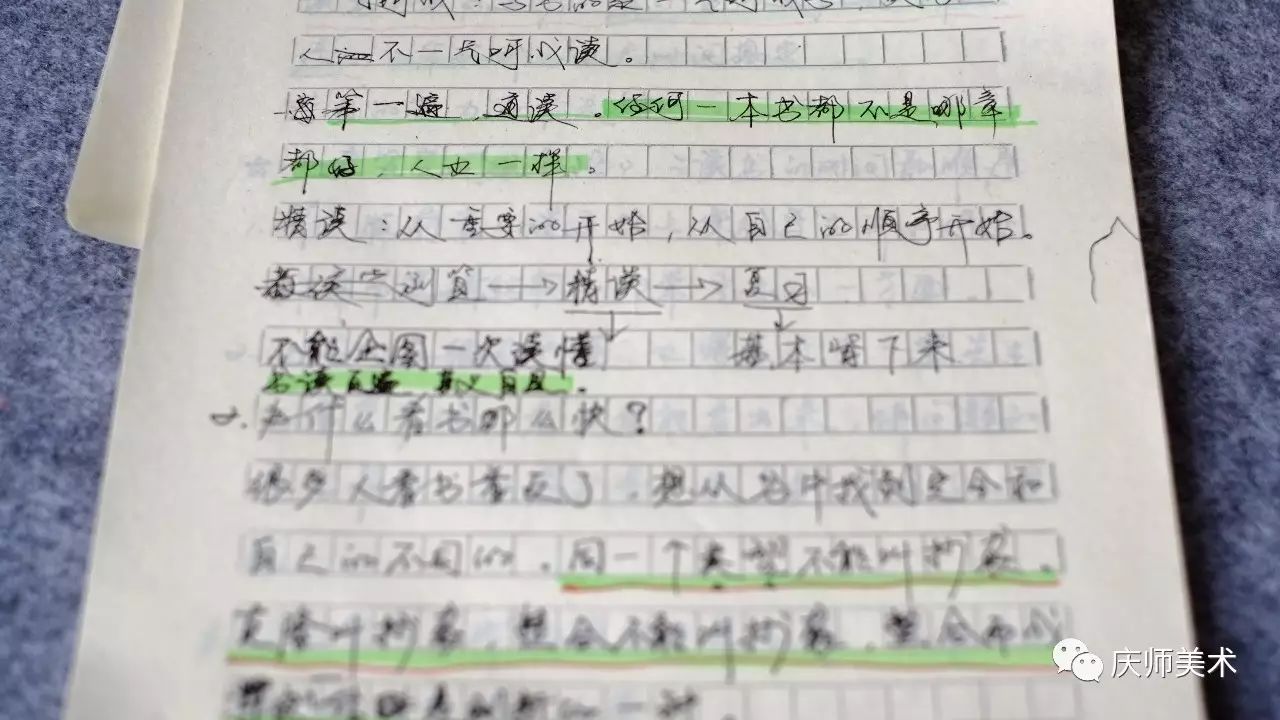 不一气呵成读。
第一遍,通读。任何一本书都不是哪章
都好,人也一样。
精读:从重要的开始,从自己的顺序开始。
运算→精读→复习
不能企图一次读懂 基本留下来
书读百遍 其义自见。
2.为什么看书那么快?
很多人看书看反了,想从书中找到完全和
自己的不同的,同一个类型不能叫抄袭,
直接叫抄袭,整合不能叫抄袭,整合而成
庆师美术